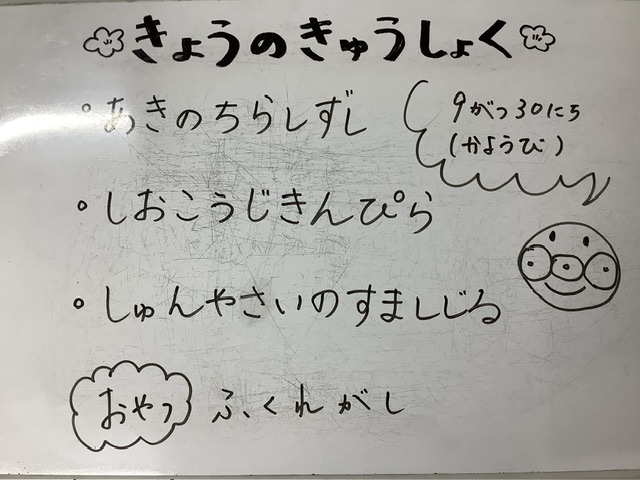 きょうのきゅうしょく
9がつ30にち
(かようび)
・あきのちらしずし
・しおこうじきんぴら
・しゅんやさいのすましじる
おやつ ふくれがし